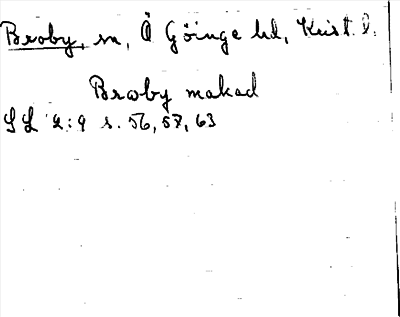 Broby, sn, Ö Göinge hd, Krist. l.
Broby makad
SL 2:9 s. 56, 57, 63